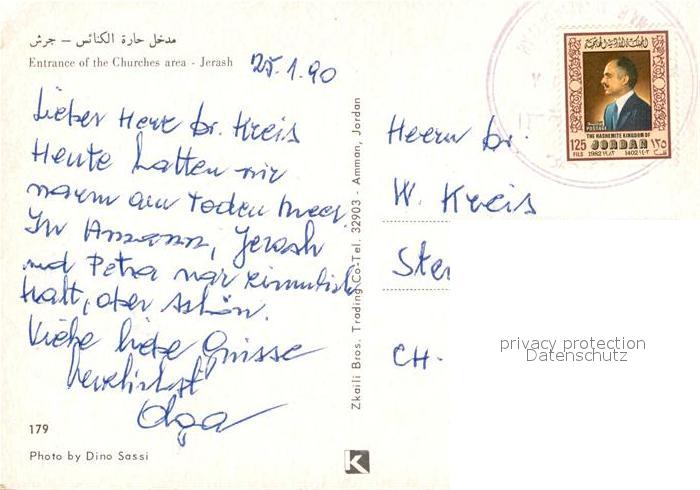 مدخل حارة الكنائس – جرش
Entrance of the Churches area - Jerash
25.1.90
Lieber Herr Dr. Kreis
Heute hatten wir
warm am Toten Meer.
In Amman, Jerash
und Petra war ziemlich
kalt, aber schön.
Viele liebe Grüsse
herzlichst
Olga
179
Photo by Dino Sassi
Zkaili Bros. Trading Co-Tel. 32903 - Amman, Jordan
K
المملكة الأردنية الهاشمية
POSTAGE
THE HASHEMITE KINGDOM OF
125 JORDAN ١٢٥
FILS 1982 ١٩٨٢ 1402 ١٤٠٢ فلس
Herrn Dr.
W. Kreis
Ste
CH-
privacy protection
Datenschutz